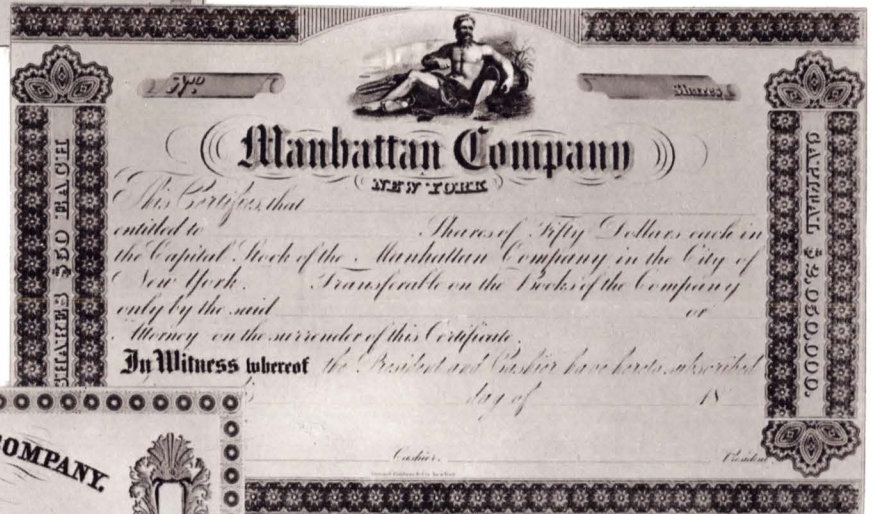 No
Shares
Manhattan Company
NEW YORK
SHARES $50 EACH
CAPITAL $2,050,000.
This Certifies that
entitled to Shares of Fifty Dollars each in
the Capital Stock of the Manhattan Company in the City of
New York. Transferable on the Books of the Company
only by the said or
Attorney on the surrender of this Certificate.
In Witness whereof the President and Cashier have hereto subscribed
day of 18
Cashier. President
COMPANY.